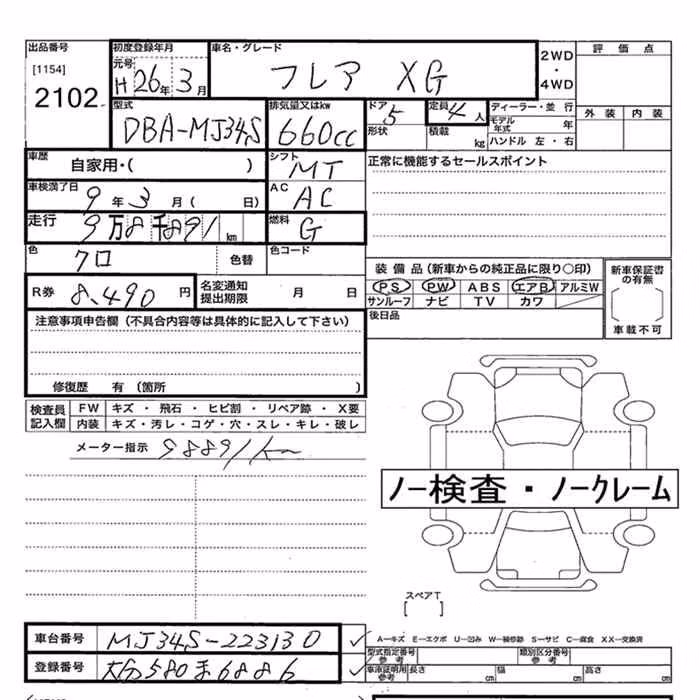 出品番号 初度登録年月 車名・グレード 2WD・4WD 評価点
[1154] 元号
2102 H 26年 3月 フレア XG
外装 内装
型式 排気量又はkw ドア 定員 ディーラー・並行
DBA-MJ34S 660cc 5 4人 モデル年式 年
形状 積載 kg ハンドル 左・右
車歴 シフト 正常に機能するセールスポイント
自家用・( ) MT
車検満了日 AC
9年 3月( 日) AC
走行 燃料
9万8千891km G
色 色コード
クロ 色替
装備品(新車からの純正品に限り○印) 新車保証書の有無
R券 8,490円 名変通知提出期限 月 日 PS PW ABS エアB アルミW
サンルーフ ナビ TV カワ
車載不可
注意事項申告欄(不具合内容等は具体的に記入して下さい) 後日品
修復歴 有(箇所 )
検査員記入欄 FW キズ・飛石・ヒビ割・リペア跡・X要
内装 キズ・汚レ・コゲ・穴・スレ・キレ・破レ
メーター指示 98891km
ノー検査・ノークレーム
スペアT
[ ]
車台番号 MJ34S-223130 A―キズ E―エクボ U―凹み W―補修跡 S―サビ C―腐食 XX―交換済
型式指定番号 参考 類別区分番号 参考
登録番号 大分580ま6886 車庫証明用参考 長さ cm 幅 cm 高さ cm